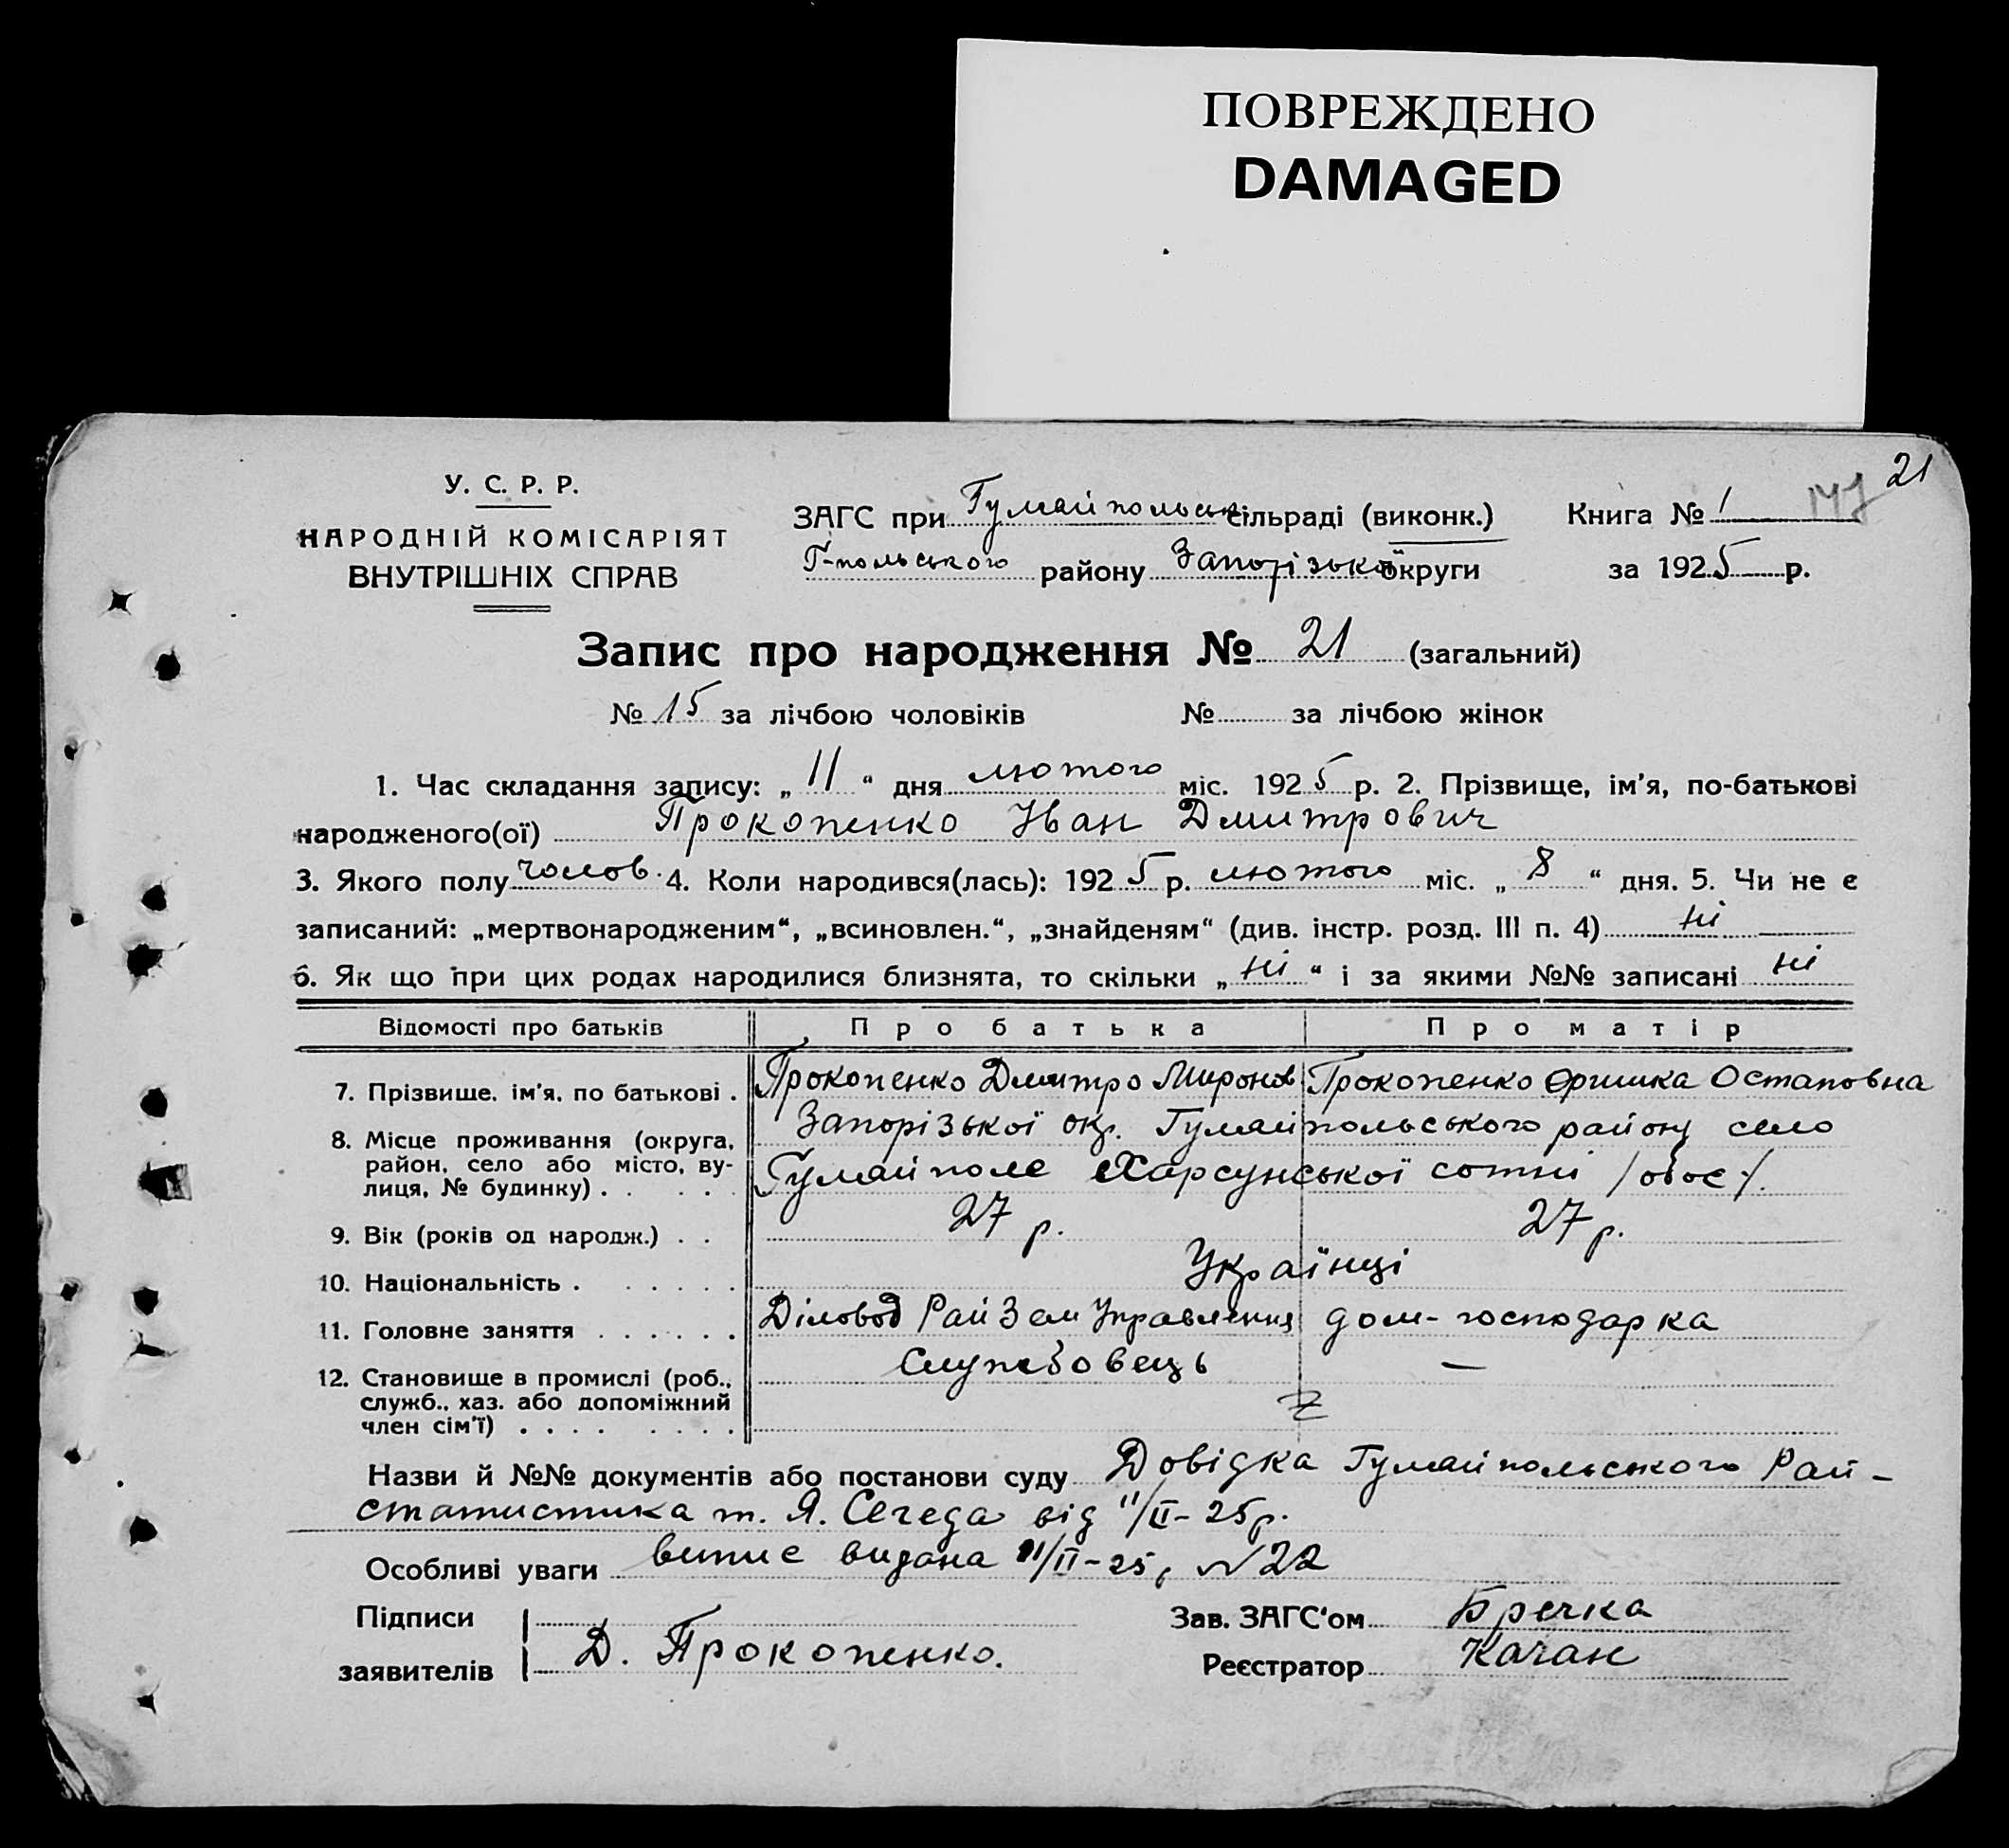 ПОВРЕЖДЕНО
DAMAGED
21
У. С. Р. Р.
НАРОДНІЙ КОМІСАРІЯТ
ВНУТРІШНІХ СПРАВ
ЗАГС при Гуляйпольськ сільраді (виконк.)
Г-польського району Запорізької округи
Книга № 1
за 1925 р.
Запис про народження № 21 (загальний)
№ 15 за лічбою чоловіків № за лічбою жінок
1. Час складання запису: „ 11 “ дня лютого міс. 1925 р. 2. Прізвище, ім'я, по-батькові
народженого(ої) Прокопенко Іван Дмитрович
3. Якого полу чолов. 4. Коли народився(лась): 1925 р. лютого міс. „ 8 “ дня. 5. Чи не є
записаний: „мертвонародженим“, „всиновлен.“, „знайденям“ (див. інстр. розд. III п. 4) ні
6. Як що при цих родах народилися близнята, то скільки „ ні “ і за якими №№ записані ні
Відомості про батьків Про батька Про матір
7. Прізвище, ім'я, по батькові . Прокопенко Дмитро Миронов Прокопенко Остаповна
8. Місце проживання (округа, Запорізької окр. Гуляйпольського району село
район, село або місто, ву- Гуляйполе Харсунської сотні /обоє/.
лиця, № будинку) . . . . .
9. Вік (років од народж.) . . 27 р. 27 р.
10. Національність . . . . . . Українці
11. Головне заняття . . . . . . Діловод РайЗемУправління дом-господарка
12. Становище в промислі (роб., Службовець —
служб., хаз. або допоміжний
член сім'ї) . . . . . . . .
Z
Назви й №№ документів або постанови суду Довідка Гуляйпольського Рай-
статистика т. Я. Сегеда від 11/II-25р.
Особливі уваги випис видана 11/II-25, N22
Підписи Зав. ЗАГС'ом Бречка
заявителів Д. Прокопенко. Реєстратор Качан